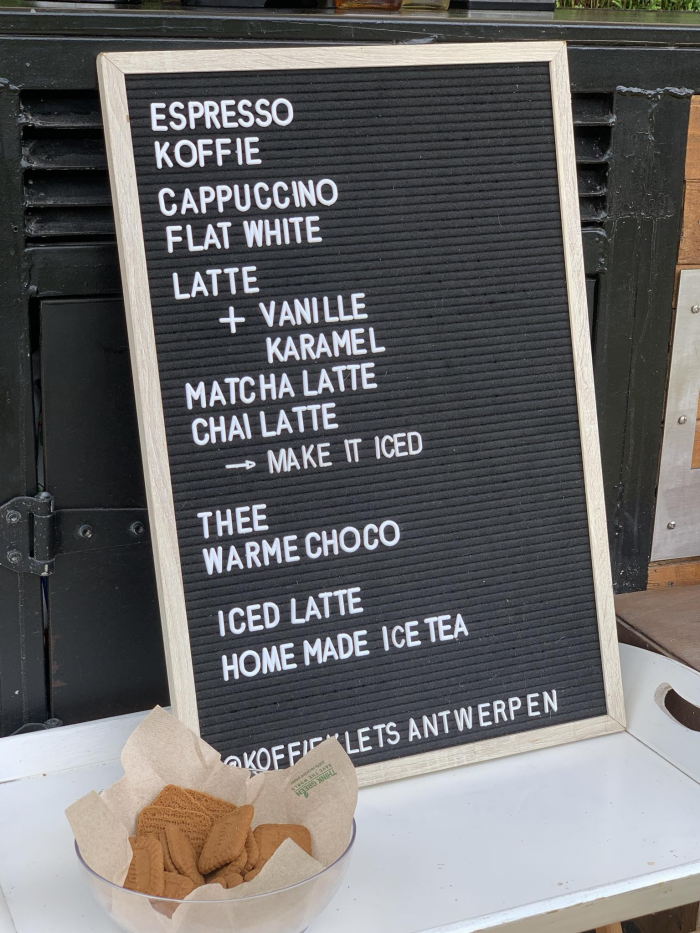 ESPRESSO
KOFFIE
CAPPUCCINO
FLAT WHITE
LATTE
+ VANILLE
KARAMEL
MATCHA LATTE
CHAI LATTE
→ MAKE IT ICED
THEE
WARME CHOCO
ICED LATTE
HOME MADE ICE TEA
LETS ANTWERPEN
THINK GREEN